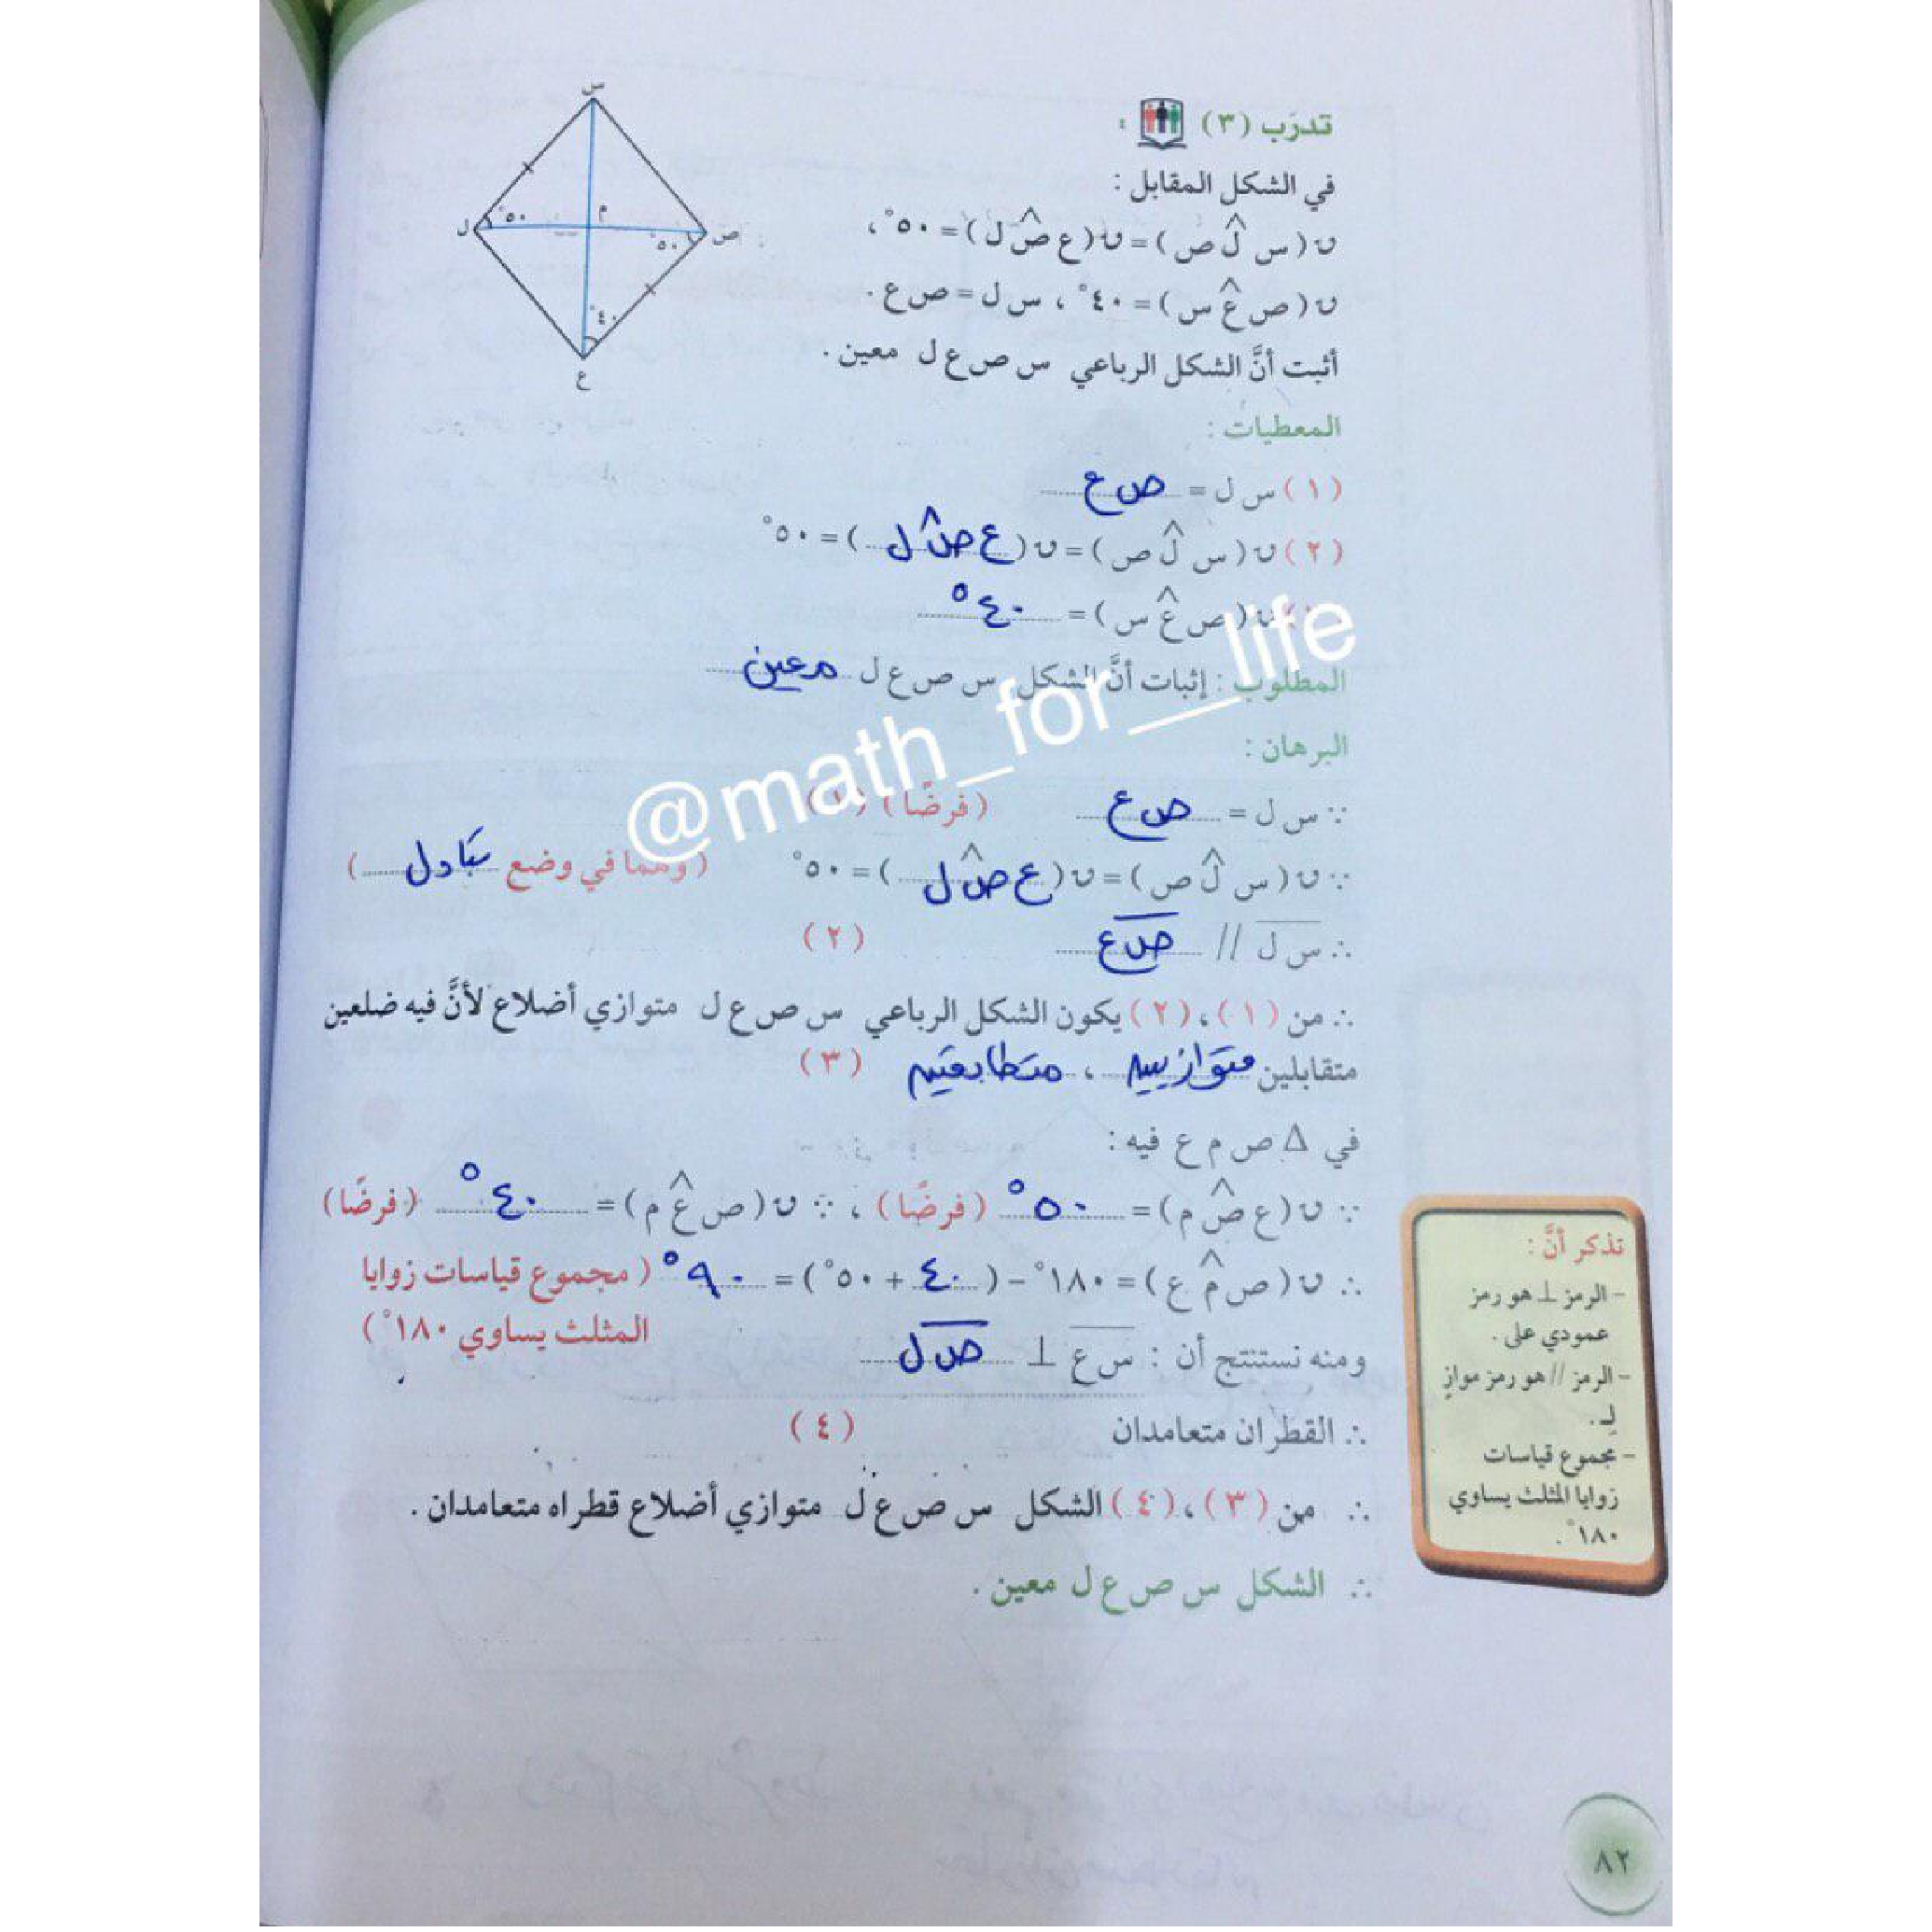 تدرّب (٣) :
في الشكل المقابل :
ن(س لَ ص) = ن(ع صَ ل) = ٥٠°،
ن(ص عَ س) = ٤٠° ، س ل = ص ع .
أثبت أنَّ الشكل الرباعي س ص ع ل معين .
س
ل
٥٠°
م
٥٠°
ص
٤٠°
ع
المعطيات :
(١) س ل = ص ع
(٢) ن(س لَ ص) = ن(ع صَ ل) = ٥٠°
ن(ص عَ س) = ٤٠°
المطلوب : إثبات أنَّ الشكل س ص ع ل معين
البرهان :
@math_for__life
∵ س ل = ص ع (فرضًا) (١)
∵ ن(س لَ ص) = ن(ع صَ ل) = ٥٠° (وهما في وضع تبادل)
∴ س ل // ص ع (٢)
∴ من (١)، (٢) يكون الشكل الرباعي س ص ع ل متوازي أضلاع لأنَّ فيه ضلعين
متقابلين متوازيين ، متطابقين (٣)
في Δ ص م ع فيه :
∵ ن(ع صَ م) = ٥٠° (فرضًا) ، ∵ ن(ص عَ م) = ٤٠° (فرضًا)
∴ ن(ص مَ ع) = ١٨٠° - (٤٠ + ٥٠°) = ٩٠° (مجموع قياسات زوايا
المثلث يساوي ١٨٠°)
ومنه نستنتج أن : س ع ⊥ ص ل
∴ القطران متعامدان (٤)
∴ من (٣)، (٤) الشكل س ص ع ل متوازي أضلاع قطراه متعامدان .
∴ الشكل س ص ع ل معين .
تذكر أنَّ :
- الرمز ⊥ هو رمز
عمودي على .
- الرمز // هو رمز موازٍ
لـِ .
- مجموع قياسات
زوايا المثلث يساوي
١٨٠° .
٨٢